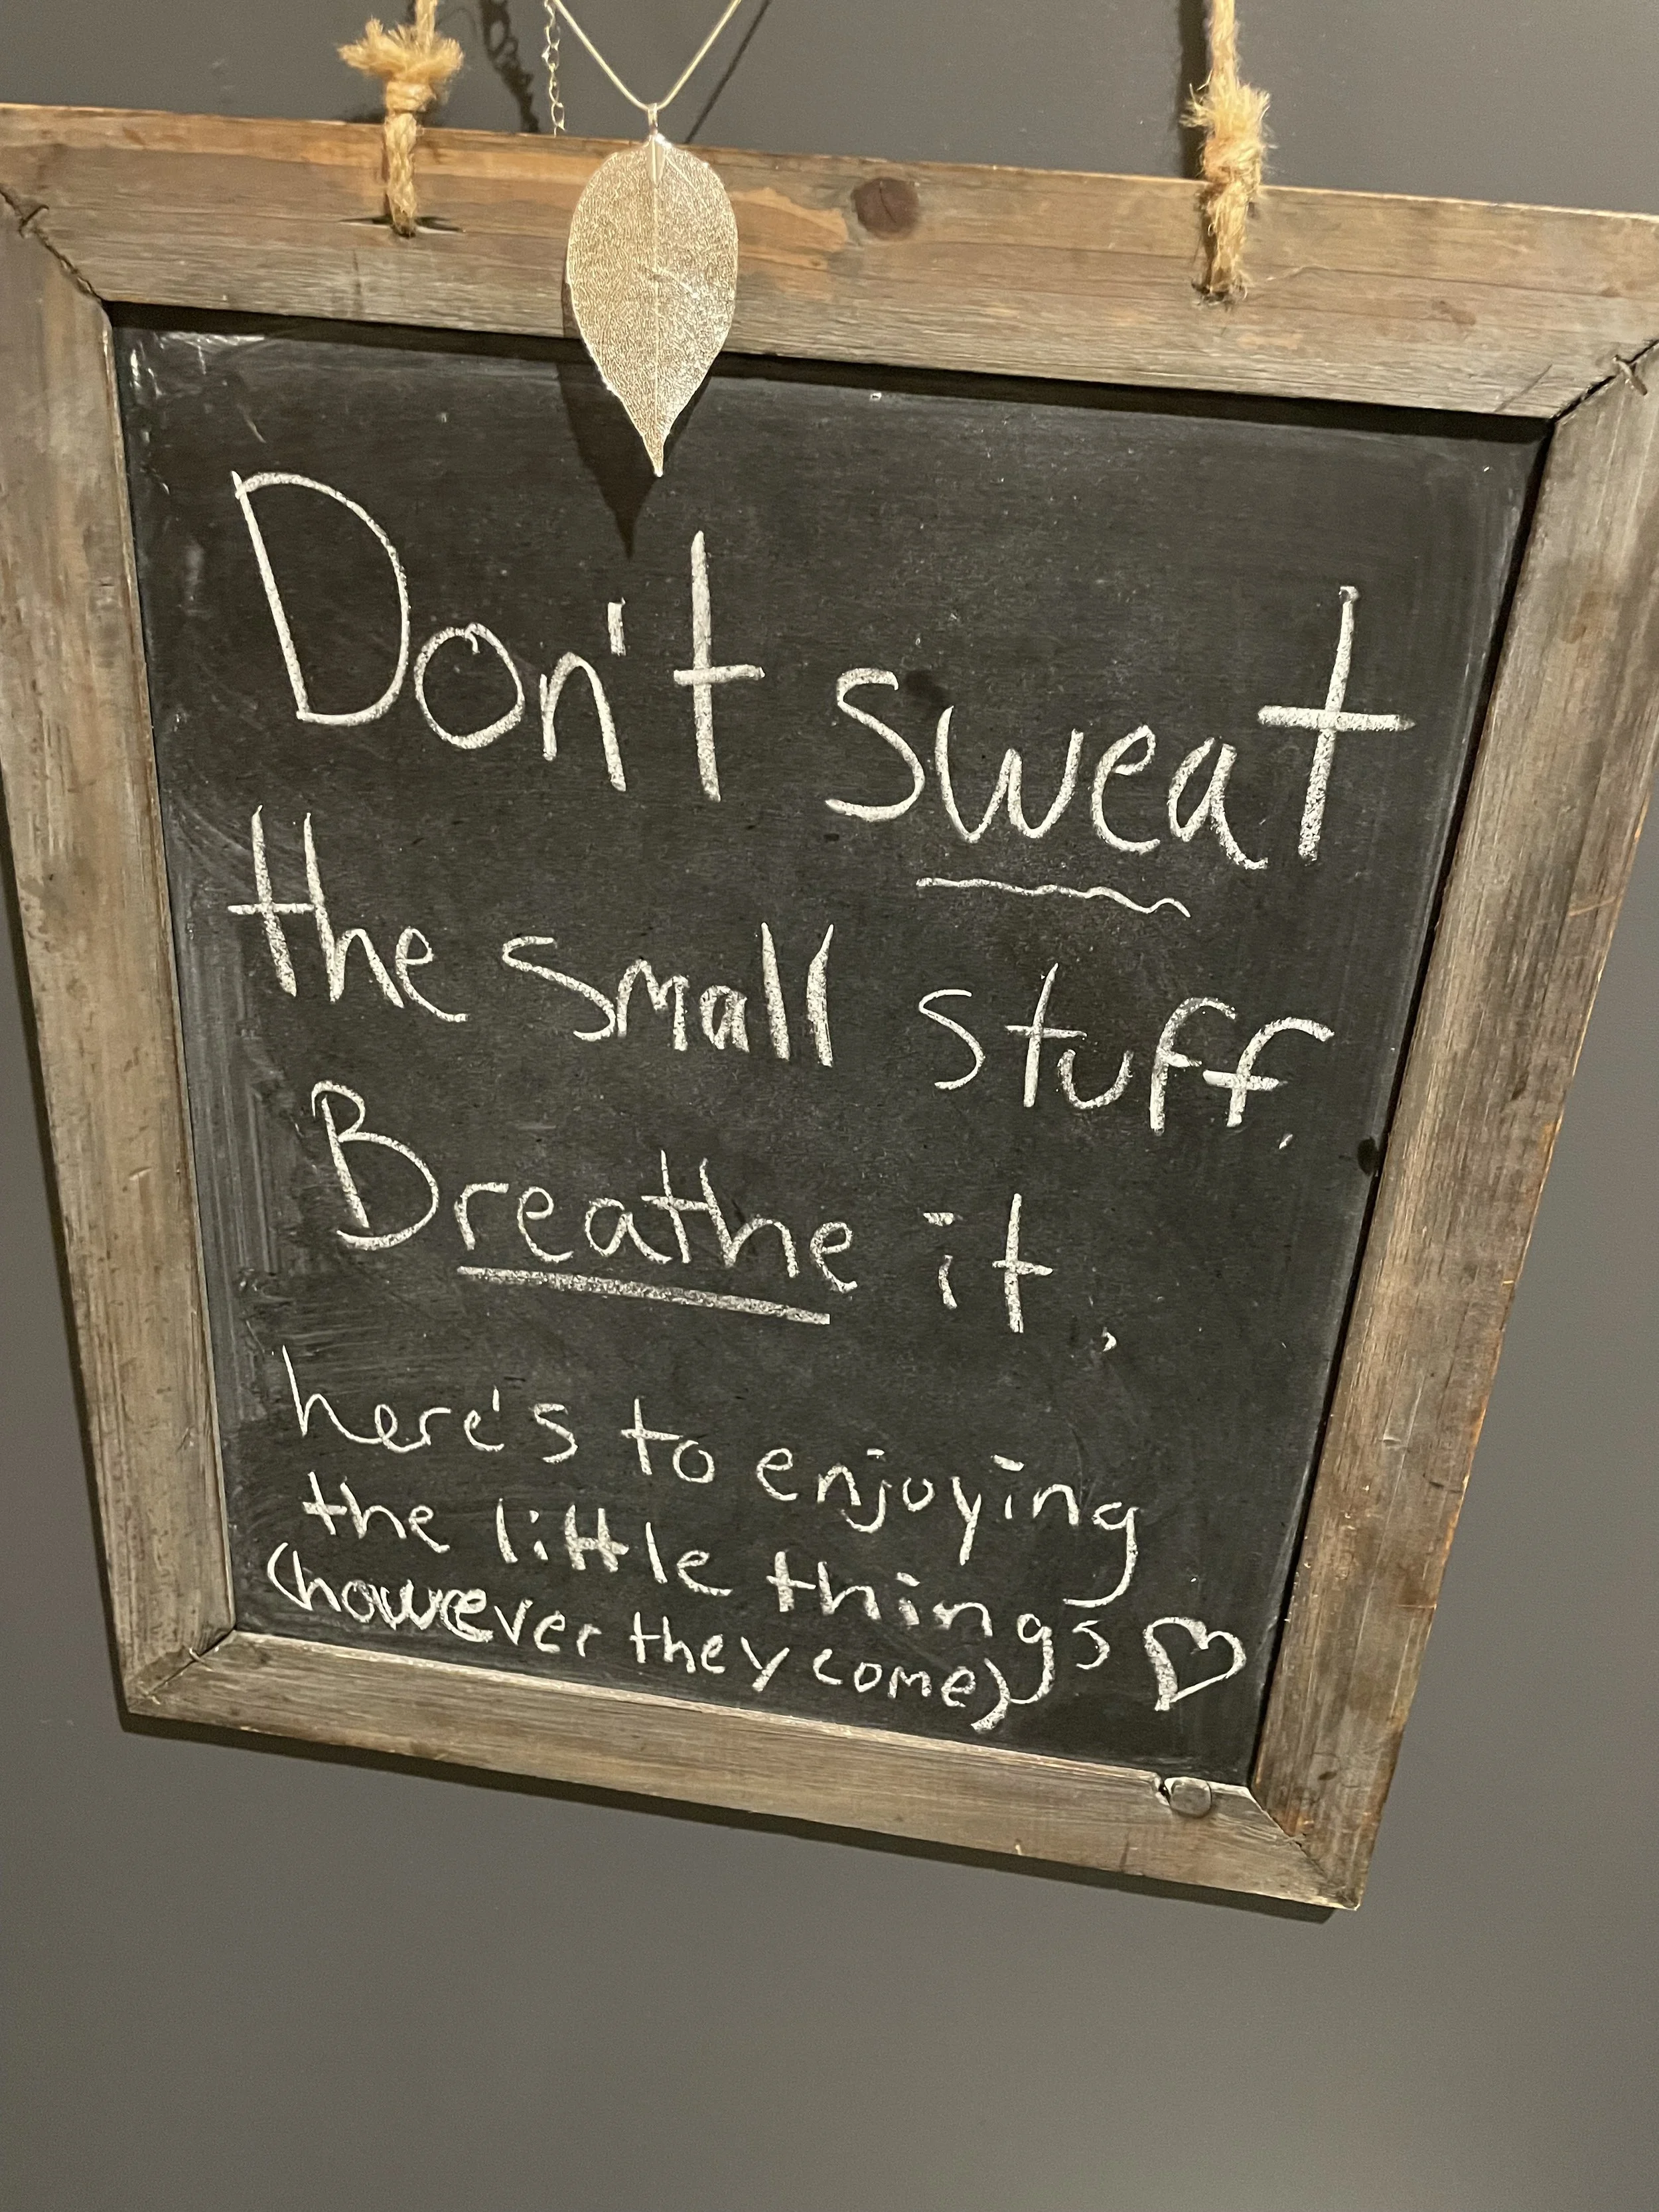 Don't sweat
the small stuff.
Breathe it.
here's to enjoying
the little things ♡
(however they come)